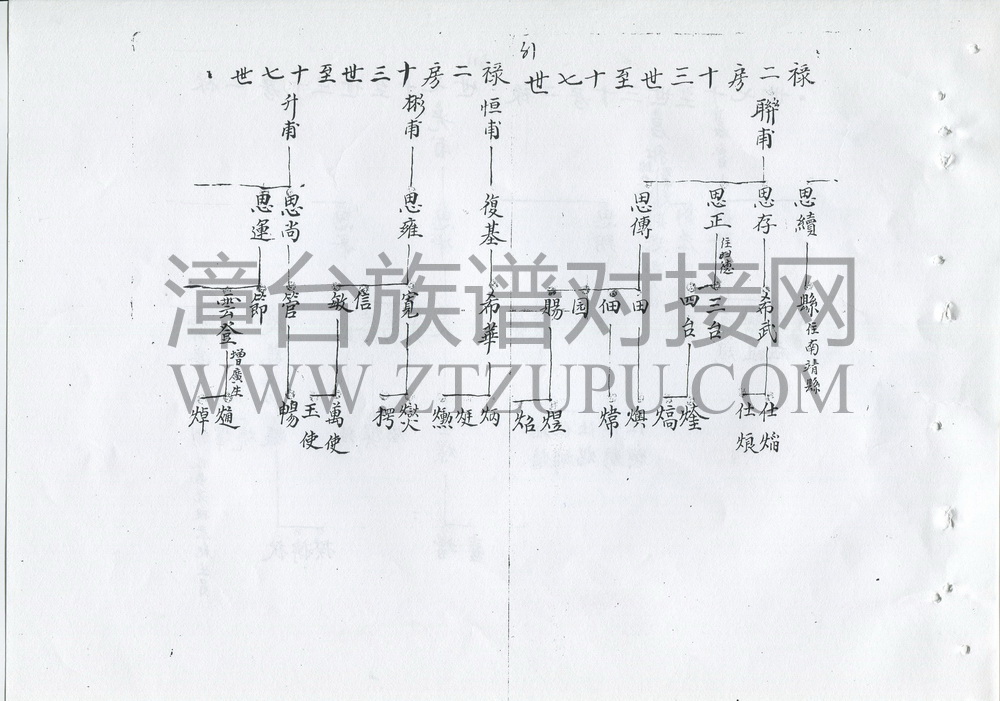 51
祿二房十三世至十七世
聯甫
思續
思存
思正
住曉德
思傳
縣
住南靖縣
希武
三台
四台
田
佃
园
賜
仕焰
仕烺
熢
熇
燠
常
煜
焰
祿二房十三世至十七世
恒甫
彬甫
升甫
復基
思雍
思尚
思運
希華
寬
信
敏
管
節
雲登
增廣生
炳
烶
燻
爕
摴
萬使
玉使
暢
熥
焯
漳台族谱对接网
WWW.ZTZUPU.COM